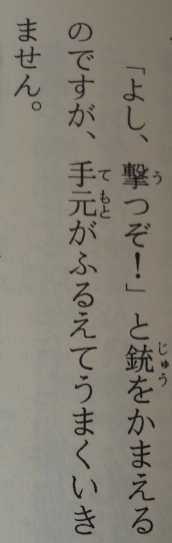 「よし、撃つぞ！」と銃をかまえる
のですが、手元がふるえてうまくいき
ません。